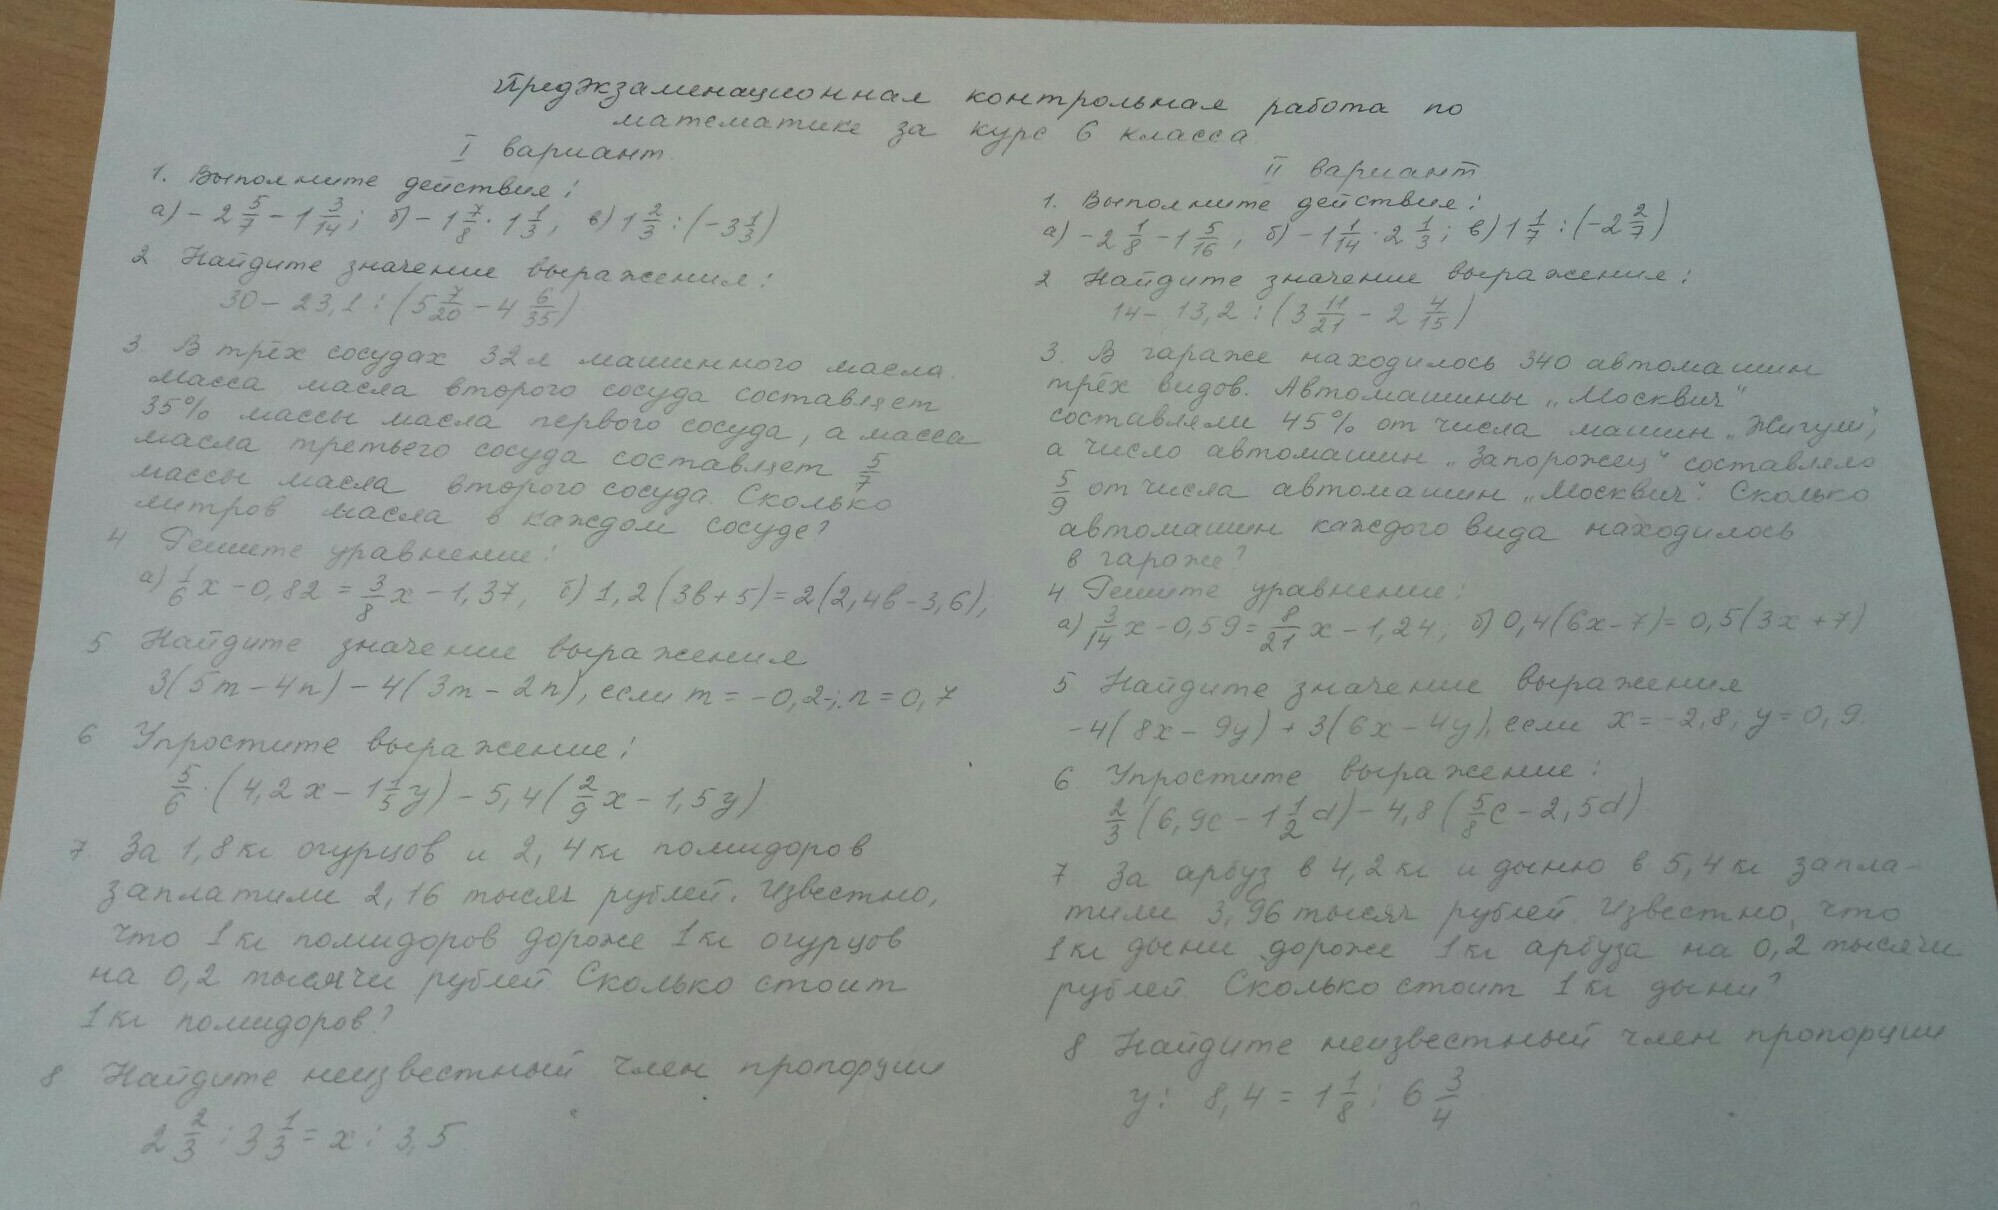 Предэкзаменационная контрольная работа по
математике за курс 6 класса
I вариант.
1. Выполните действия:
а) -2 5/7 - 1 3/14; б) -1 7/8 · 1 1/3, в) 1 2/3 : (-3 1/3)
2 Найдите значение выражения:
30 - 23,1 : (5 7/20 - 4 6/35)
3. В трёх сосудах 32 л машинного масла.
Масса масла второго сосуда составляет
35% массы масла первого сосуда, а масса
масла третьего сосуда составляет 5/7
массы масла второго сосуда. Сколько
литров масла в каждом сосуде?
4 Решите уравнение:
а) 1/6 x - 0,82 = 3/8 x - 1,37, б) 1,2(3в+5) = 2(2,4в-3,6),
5 Найдите значение выражения
3(5m-4n) - 4(3m-2n), если m = -0,2; n = 0,7
6 Упростите выражение:
5/6 · (4,2x - 1 1/5 y) - 5,4(2/9 x - 1,5y)
7. За 1,8 кг огурцов и 2,4 кг помидоров
заплатили 2,16 тысяч рублей. Известно,
что 1 кг помидоров дороже 1 кг огурцов
на 0,2 тысячи рублей Сколько стоит
1 кг помидоров?
8 Найдите неизвестный член пропорции
2 2/3 : 3 1/3 = x : 3,5.
II вариант
1. Выполните действия:
а) -2 1/8 - 1 5/16; б) -1 1/14 · 2 1/3; в) 1 1/7 : (-2 2/7)
2 Найдите значение выражения:
14 - 13,2 : (3 11/21 - 2 4/15)
3. В гараже находилось 340 автомашин
трёх видов. Автомашины „Москвич“
составляли 45% от числа машин „Жигули“,
а число автомашин „Запорожец“ составляло
5/9 от числа автомашин „Москвич“. Сколько
автомашин каждого вида находилось
в гароже?
4 Решите уравнение:
а) 3/14 x - 0,59 = 8/21 x - 1,24; б) 0,4(6x-7) = 0,5(3x+7)
5 Найдите значение выражения
-4(8x-9y) + 3(6x-4y), если x = -2,8; y = 0,9.
6 Упростите выражение:
2/3 (6,9c - 1 1/2 d) - 4,8(5/8 c - 2,5d)
7 За арбуз в 4,2 кг и дыню в 5,4 кг запла-
тили 3,96 тысяч рублей. Известно, что
1 кг дыни дороже 1 кг арбуза на 0,2 тысячи
рублей Сколько стоит 1 кг дыни?
8 Найдите неизвестный член пропорции
y : 8,4 = 1 1/8 : 6 3/4